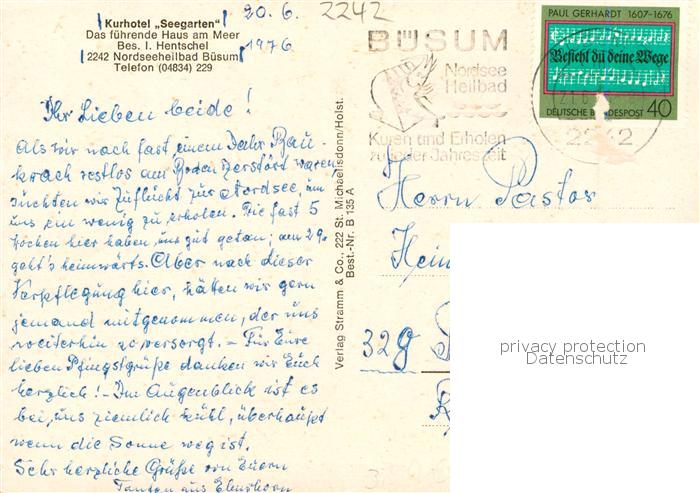 20. 6.
2242
1976
Kurhotel „Seegarten"
Das führende Haus am Meer
Bes. I. Hentschel
2242 Nordseeheilbad Büsum
Telefon (04834) 229
Ihr Lieben beide!
Als wir nach fast einem Jahr Bau-
krach restlos am Boden zerstört waren,
suchten wir Zuflucht zur Nordsee, um
uns ein wenig zu erholen. Die fast 5
Wochen hier haben uns gut getan; am 29.
geht's heimwärts. Aber nach dieser
Verpflegung hier, hätten wir gern
jemand mitgenommen, der uns
weiterhin so versorgt. – Für Eure
lieben Pfingstgrüße danken wir Euch
herzlich! – Im Augenblick ist es
bei uns ziemlich kühl, überhaupt
wenn die Sonne weg ist.
Sehr herzliche Grüße von Euern
Tanten aus Elmshorn
Verlag Stramm & Co., 222 St. Michaelisdonn/Holst.
Best.-Nr. B 135 A
BÜSUM
Nordsee
Heilbad
Kuren und Erholen
zu jeder Jahreszeit
PAUL GERHARDT 1607-1676
Befiehl du deine Wege
DEUTSCHE BUNDESPOST 40
2242
Herrn Pastor
Hein
328
privacy protection
Datenschutz